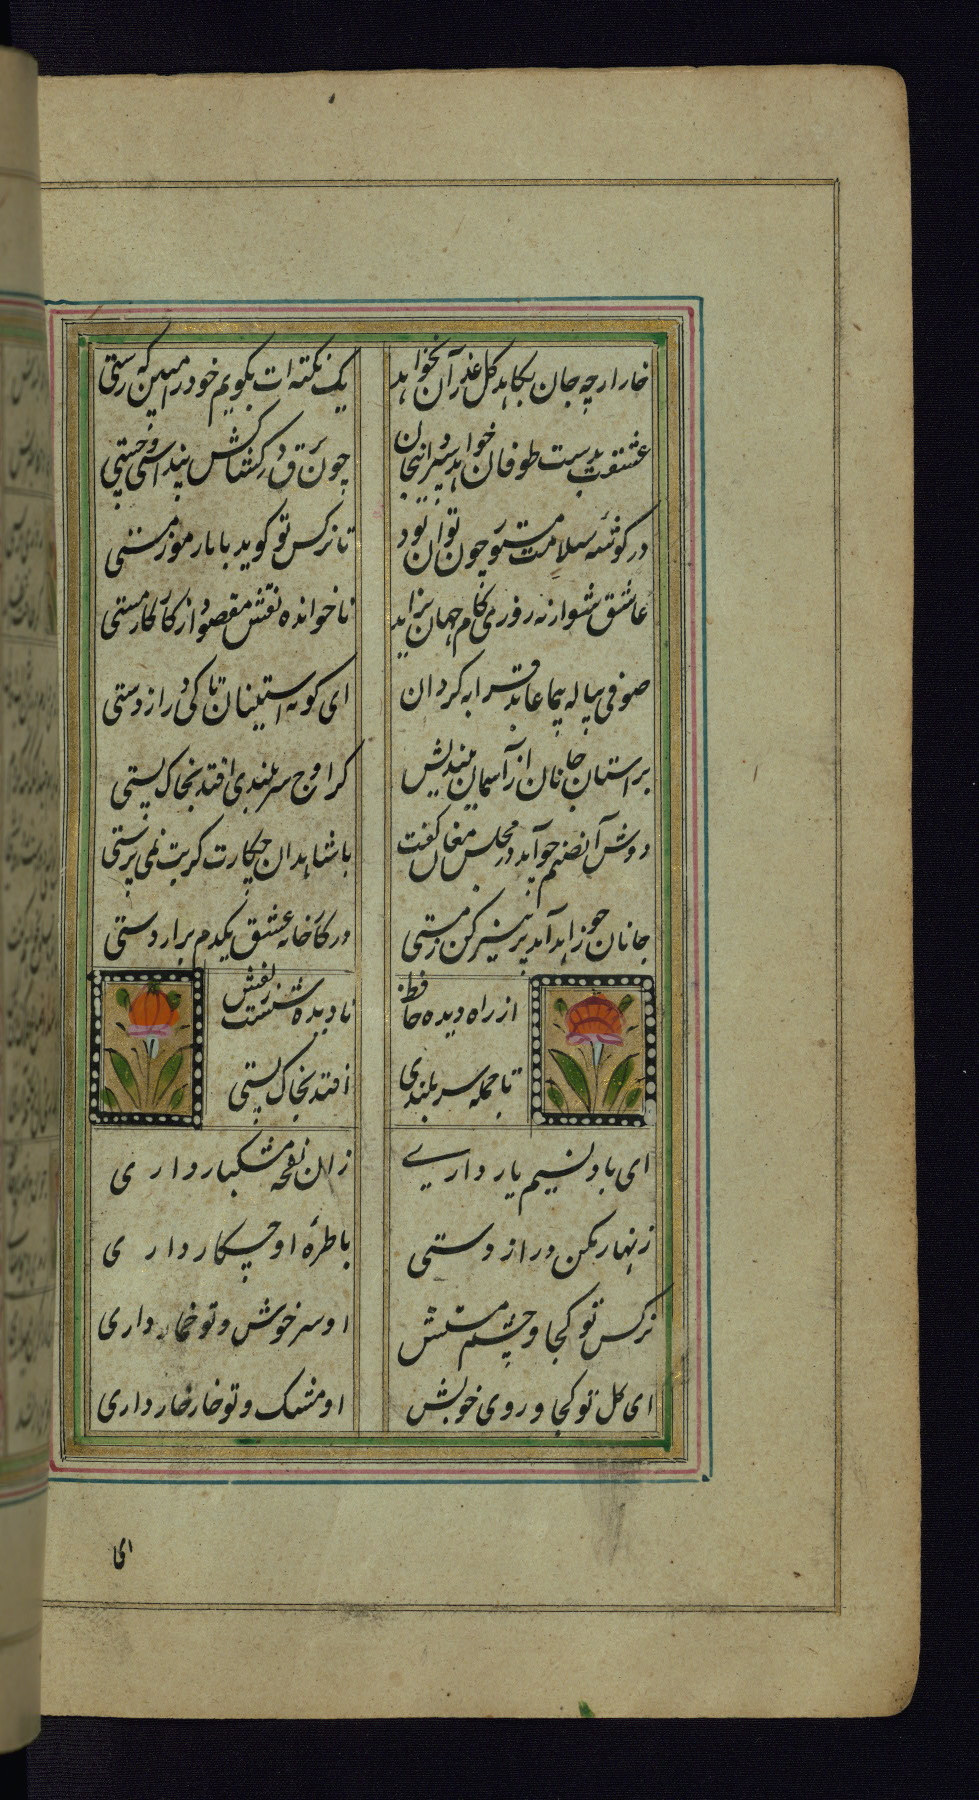 خار ارچه جان بکاهد کل عذر آن بخواهد
یک نکته ات بکویم خود را مبین که رستی
عشقت بدست طوفان خواهد سپرد ای جان
چون برق در کشاکش پنداشتی و جستی
در کوشه سلامت مستور چون توان بود
تا نرکس تو کوید با ما رموز مستی
عاشق شو ار نه روزی کام جهان سراید
ناخوانده نقش مقصود از کارگاه مستی
صوفی پیاله پیما عابد قرابه کردان
ای کوته استینان تا کی دراز دستی
بر استان جانان از آسمان میندیش
کز اوج سربلندی افتد بخاک پستی
دوش آن صنم چه خواند در مجلس مغان کفت
با شاهدان چکارت کر بت نمی پرستی
جانان چو زاهد آمد پرهیز کن ز مستی
در کارخانه عشق یکدم برار دستی
از راه دیده حافظ
نادیده شست زلفش
تا جمله سربلندی
افتد بخاک پستی
ای باد نسیم یار داریے
زان نفحه مشکبار داری
زنهار مکن دراز دستی
با طرهٔ او چکار داری
نرکس تو کجا و چشم مستش
او سرخوش و تو خمار داری
ای کل تو کجا و روی خوبش
او مشک و تو خار خار داری